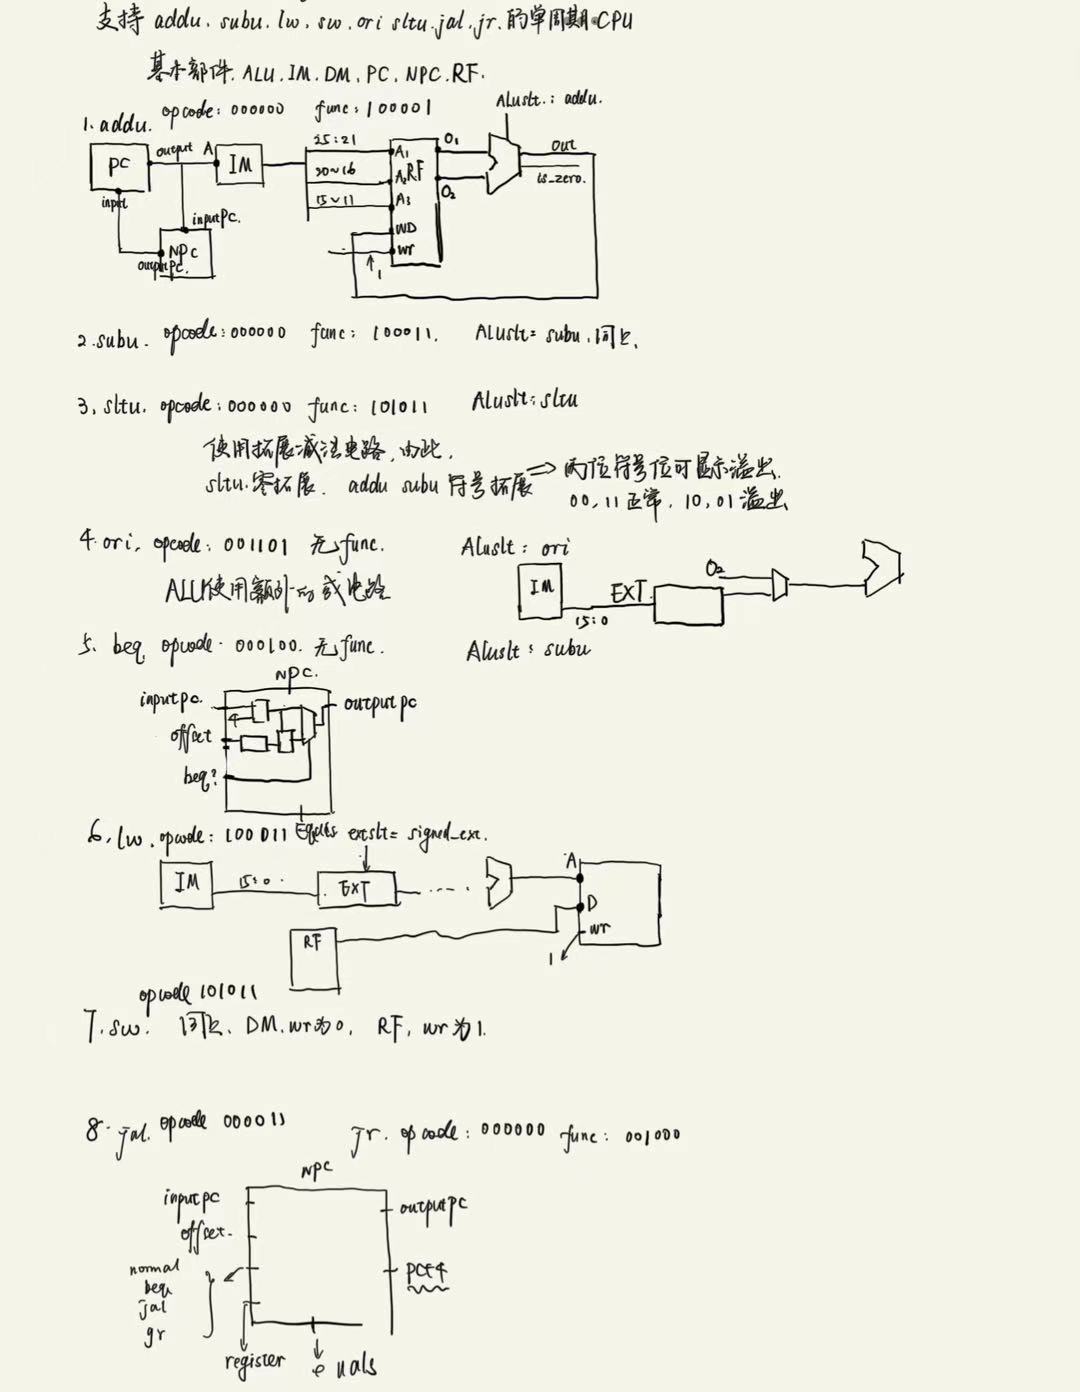 支持 addu. subu. lw. sw. ori sltu. jal. jr. 的单周期 CPU
基本部件. ALU. IM. DM. PC. NPC. RF.
1. addu. opcode: 000000 func: 100001 Aluslt.: addu.
PC output A IM 25:21 A1 RF O1 out
20~16 A2 O2 is_zero.
input 15~11 A3
inputPc. WD
NPC wr
outputPC. 1
2. subu. opcode: 000000 func: 100011. Aluslt= subu. 同上.
3. sltu. opcode: 000000 func: 101011 Aluslt: sltu
使用拓展减法电路, 由此,
sltu. 零拓展. addu subu 符号拓展 => 两位符号位可显示溢出.
00, 11 正常. 10, 01 溢出
4. ori, opcode: 001101 无func. Aluslt: ori
ALU使用额外的或电路
IM 15:0 EXT O2
5. beq opcode 000100. 无func. Aluslt: subu
NPC.
inputpc. 4 outputpc
offset
beq?
Equals
6. lw. opcode: 100011 extslt= signed_ext.
IM 15:0 EXT .... A
D
RF wr
1
opcode 101011
7. sw. 同上、DM. wr为0, RF, wr为1.
8. jal. opcode 000011 jr. opcode: 000000 func: 001000
NPC
inputpc outputPC
offset.
normal PC+4
beq
jal
gr
register e uals